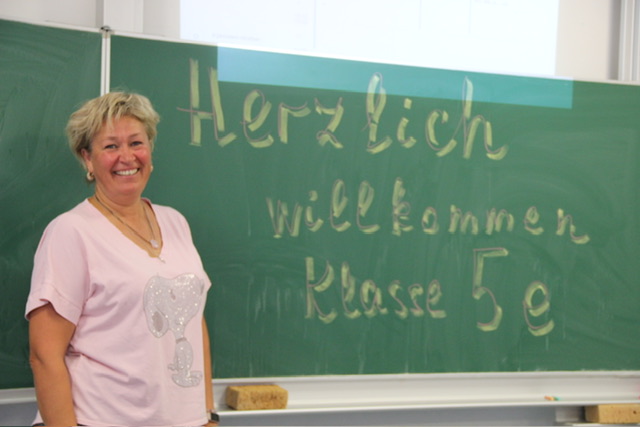 Herzlich
willkommen
Klasse 5e